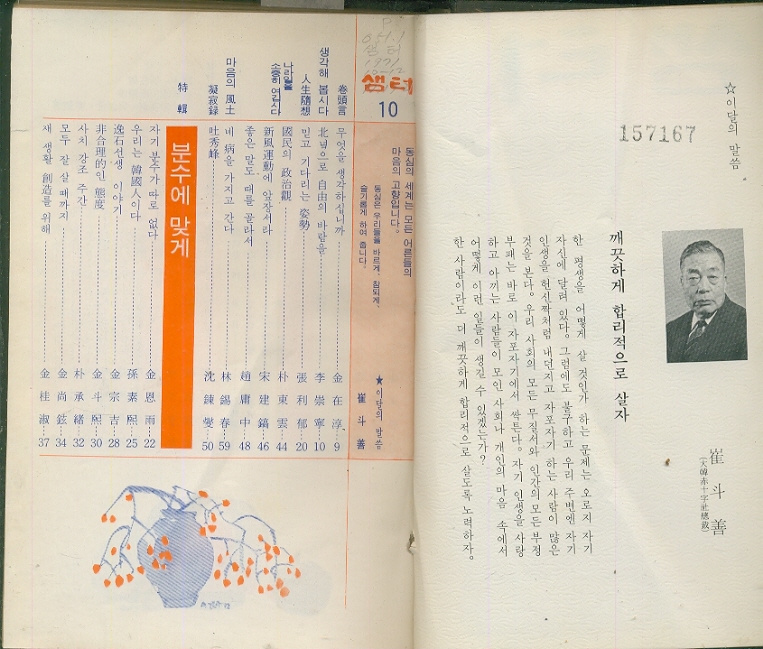 ☆이달의 말씀
157167
崔斗善
(大韓赤十字社總裁)
깨끗하게 합리적으로 살자
한 평생을 어떻게 살 것인가 하는 문제는 오로지 자기
자신에 달려 있다。그럼에도 불구하고 우리 주변엔 자기
인생을 헌신짝처럼 내던지고 자포자기 하는 사람이 많은
것을 본다。우리 사회의 모든 무질서와 인간의 모든 부정
부패는 바로 이 자포자기에서 싹튼다。자기 인생을 사랑
하고 아끼는 사람들이 모인 사회나 개인의 마음 속에서
어떻게 이런 일들이 생길 수 있겠는가?
한 사람이라도 더 깨끗하게 합리적으로 살도록 노력하자。
P.
051.1
샘터
1971
샘터
10
동심의 세계는 모든 어른들의
마음의 고향입니다。
동심은 우리들을 바르게、참되게、
슬기롭게 하여 줍니다。
★이달의 말씀 崔斗善
卷頭言 무엇을 생각하십니까 金在淳 9
생각해 봅시다 北녘으로 自由의 바람을 李崇寧 10
人生隨想 믿고 기다리는 姿勢 張利郁 20
나라일을 소중히 여깁시다 國民의 政治觀 朴東雲 44
新風運動에 앞장서라 宋建鎬 46
좋은 말도 때를 골라서 趙庸中 48
마음의 風土 네 病을 가지고 간다 林錫春 59
凝寂録 吐秀峰 沈鍊燮 50
特輯 분수에 맞게
자기 분수가 따로 없다 金恩雨 22
우리는 韓國人이다 孫素熙 25
逸石선생 이야기 金宗吉 28
非合理的인 態度 金斗熙 30
사치 강조 주간 朴承緖 32
모두 잘 살 때까지 金尙鉉 34
새 생활 創造를 위해 金桂淑 37